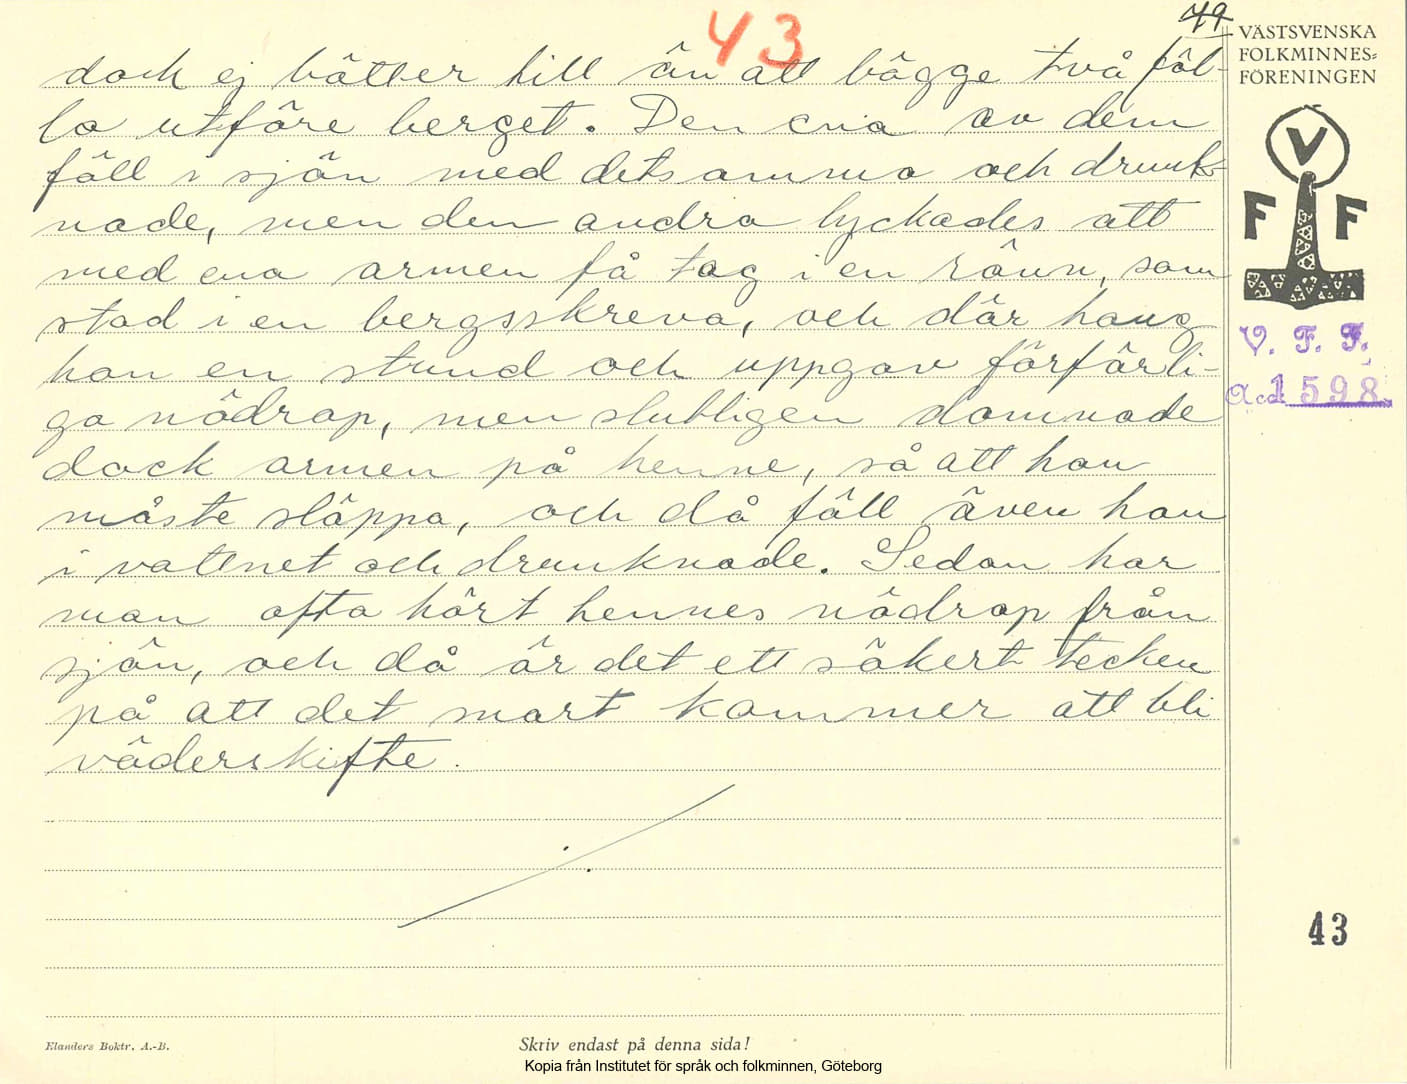 43
79
VÄSTSVENSKA
FOLKMINNES=
FÖRENINGEN
V
F F
V. F. F.
Acc. 1598
dock ej bätter till än att bägge två föl-
lo utföre berget. Den ena av dem
föll i sjön med detsamma och drunk-
nade, men den andra lyckades att
med ena armen få tag i en rönn, som
stod i en bergsskreva, och där hang
hon en stund och uppgav förfärli-
ga nödrop, men slutligen domnade
dock armen på henne, så att hon
måste släppa, och då föll även hon
i vattnet och drunknade. Sedan har
man ofta hört hennes nödrop från
sjön, och då är det ett säkert tecken
på att det snart kommer att bli
väderskifte.
43
Elanders Boktr. A.-B.
Skriv endast på denna sida!
Kopia från Institutet för språk och folkminnen, Göteborg